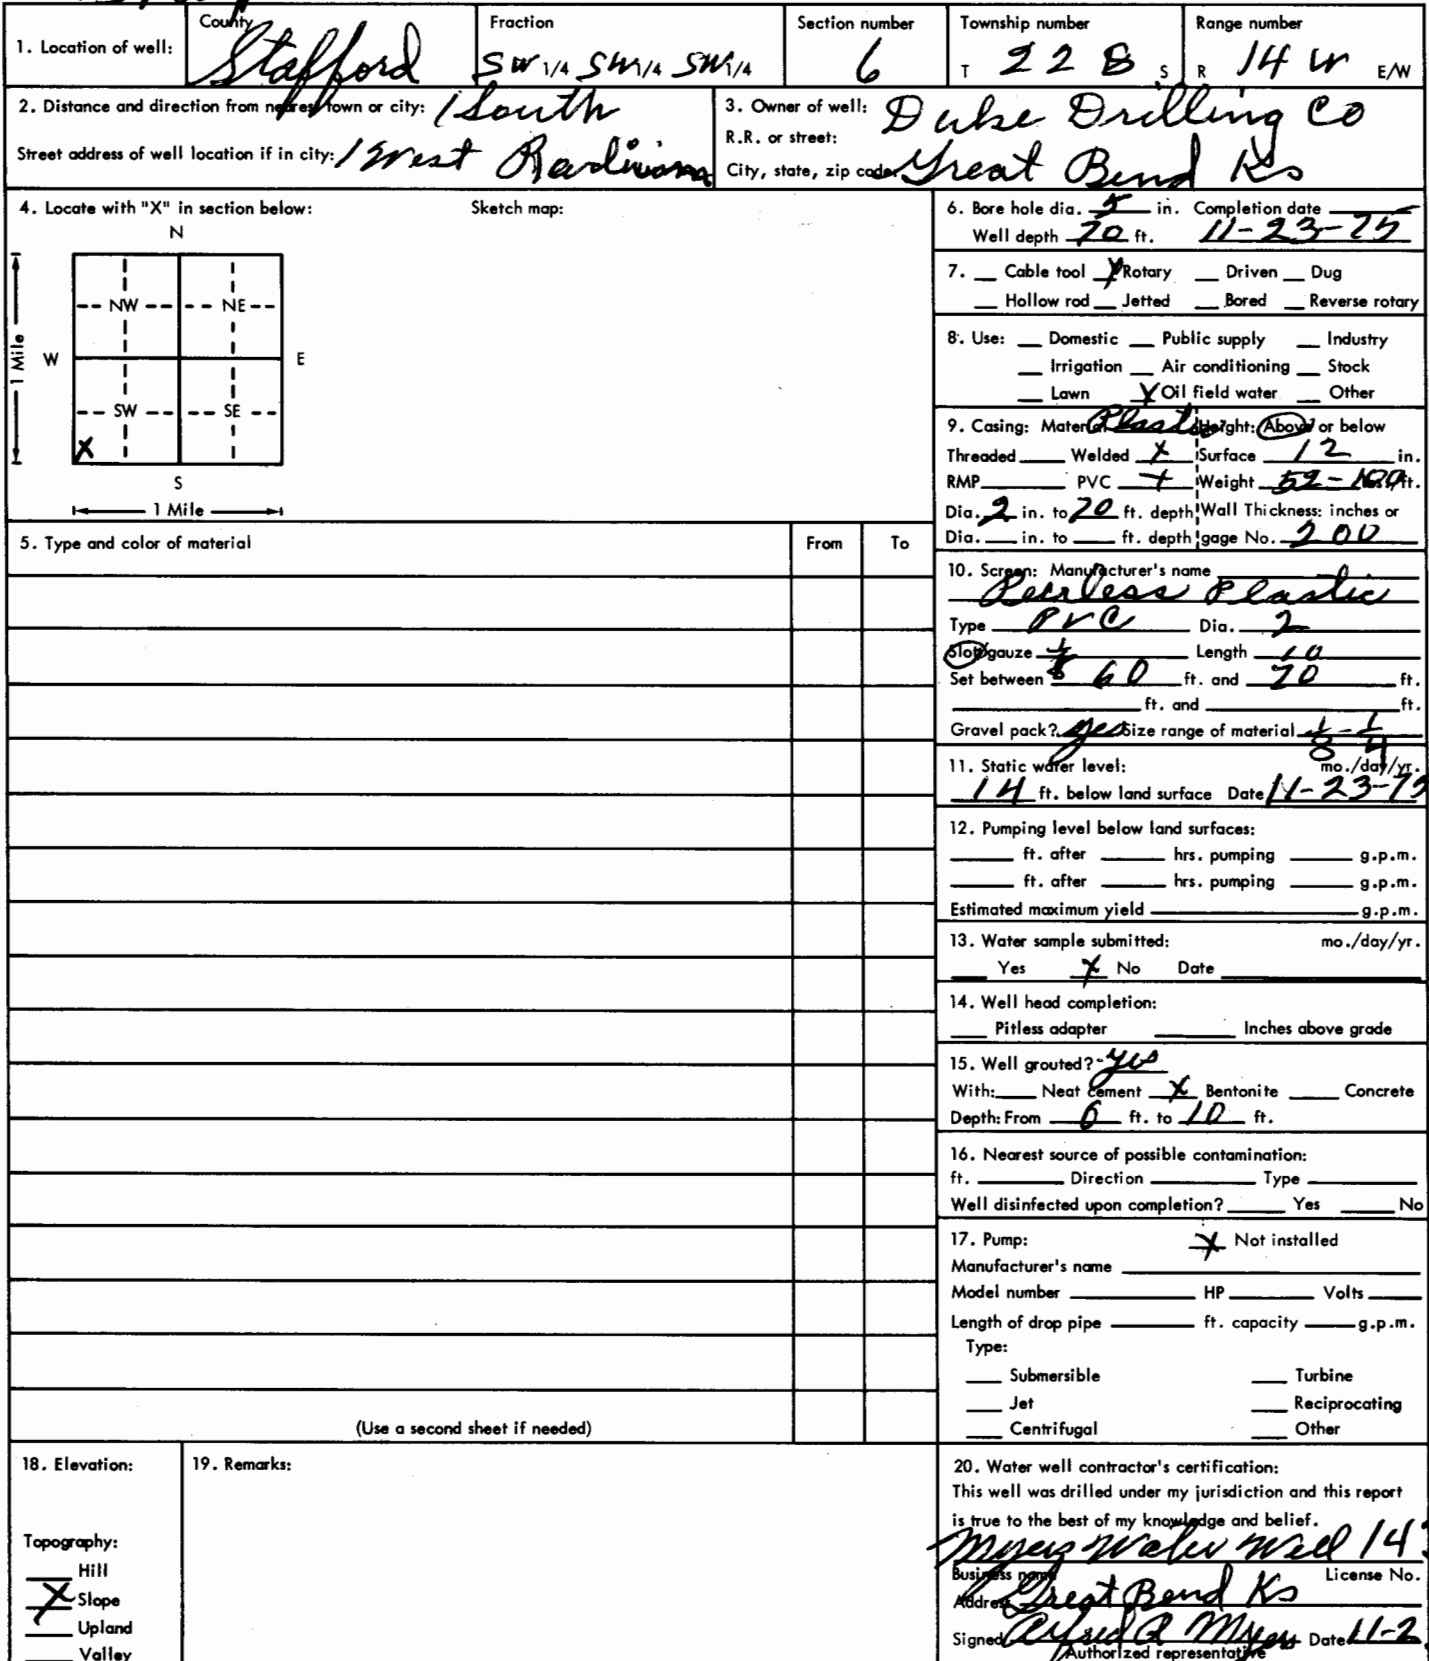 County Fraction Section number Township number Range number
1. Location of well: Stafford SW 1/4 SW 1/4 SW 1/4 6 T 22 S S R 14 W E/W
2. Distance and direction from nearest town or city: 1 South
Street address of well location if in city: 1 West Radium
3. Owner of well: Duke Drilling Co
R.R. or street:
City, state, zip code: Great Bend Ks
4. Locate with "X" in section below: Sketch map:
N
NW NE
W E
1 Mile
SW SE
X
S
1 Mile
5. Type and color of material From To
(Use a second sheet if needed)
6. Bore hole dia. 5 in. Completion date
Well depth 70 ft. 11-23-75
7. Cable tool X Rotary Driven Dug
Hollow rod Jetted Bored Reverse rotary
8. Use: Domestic Public supply Industry
Irrigation Air conditioning Stock
Lawn X Oil field water Other
9. Casing: Material Plastic Height: Above or below
Threaded Welded X Surface 12 in.
RMP PVC X Weight 52-100 lbs./ft.
Dia. 2 in. to 70 ft. depth Wall Thickness: inches or
Dia. in. to ft. depth gage No. 200
10. Screen: Manufacturer's name
Peerless Plastic
Type PVC Dia. 2
Slot/gauze 1/8 Length 10
Set between 60 ft. and 70 ft.
ft. and ft.
Gravel pack? yes Size range of material 1/8 - 1/4
11. Static water level: mo./day/yr.
14 ft. below land surface Date 11-23-75
12. Pumping level below land surfaces:
ft. after hrs. pumping g.p.m.
ft. after hrs. pumping g.p.m.
Estimated maximum yield g.p.m.
13. Water sample submitted: mo./day/yr.
Yes X No Date
14. Well head completion:
Pitless adapter Inches above grade
15. Well grouted? yes
With: Neat cement X Bentonite Concrete
Depth: From 0 ft. to 10 ft.
16. Nearest source of possible contamination:
ft. Direction Type
Well disinfected upon completion? Yes No
17. Pump: X Not installed
Manufacturer's name
Model number HP Volts
Length of drop pipe ft. capacity g.p.m.
Type:
Submersible Turbine
Jet Reciprocating
Centrifugal Other
18. Elevation:
Topography:
Hill
X Slope
Upland
Valley
19. Remarks:
20. Water well contractor's certification:
This well was drilled under my jurisdiction and this report
is true to the best of my knowledge and belief.
Myers Water Well 14
Business name License No.
Address Great Bend Ks
Signed Alfred A Myers Date 11-2
Authorized representative